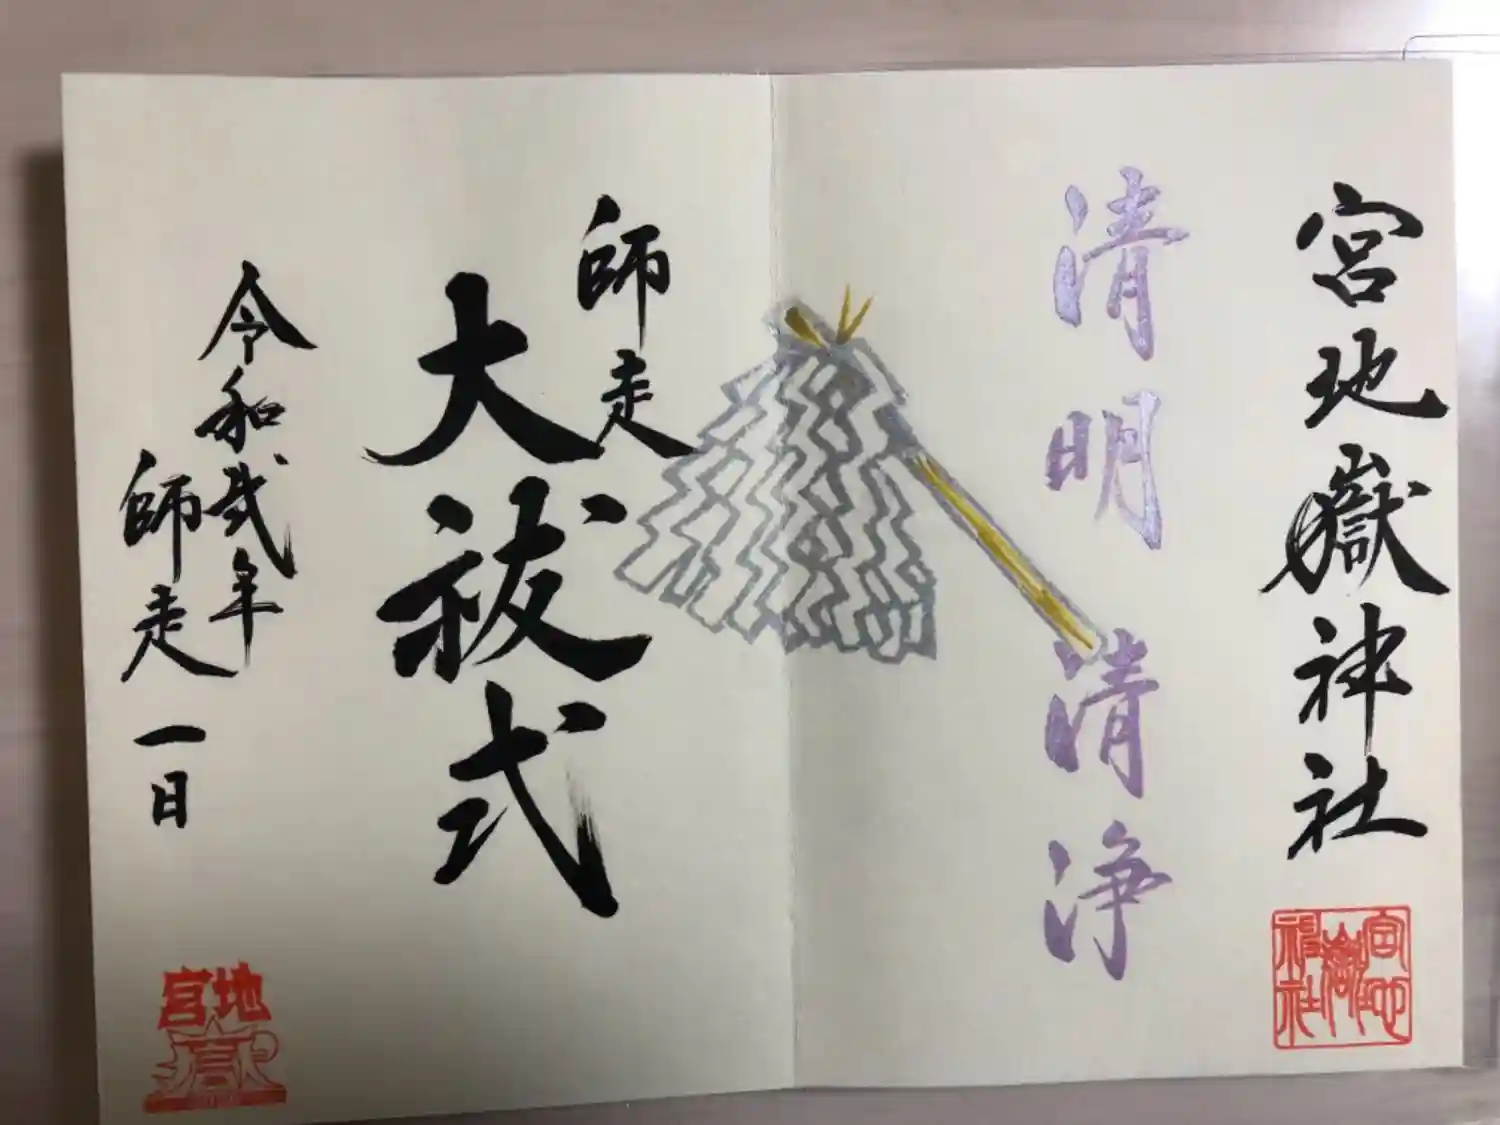 宮地嶽神社
清明 清浄
師走
大祓式
令和弐年
師走一日
宮地嶽神社
宮地嶽